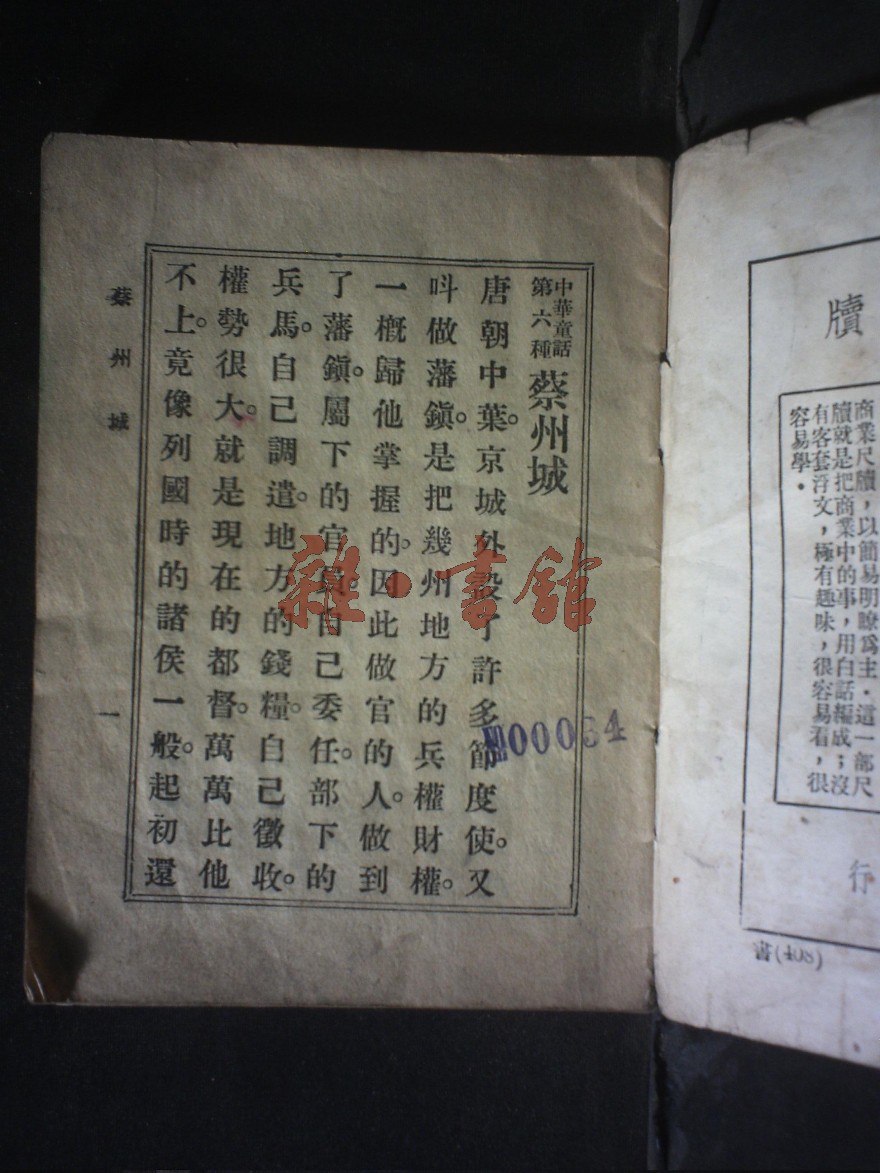 牘
商業尺牘，以簡易明瞭爲主．這一部尺
牘就是把商業中的事，用白話編成；沒
有客套浮文，極有趣味，很容易看，很
容易學．
行
書(408)
中華童話
第六種
蔡州城
唐朝中葉。京城外設了許多節度使。又
呌做藩鎭。是把幾州地方的兵權財權。
一概歸他掌握的。因此做官的人。做到
了藩鎭。屬下的官員。自己委任。部下的
兵馬。自己調遣。地方的錢糧。自己徵收。
權勢很大。就是現在的都督。萬萬比他
不上。竟像列國時的諸侯一般。起初還
蔡州城
一
雜·書館